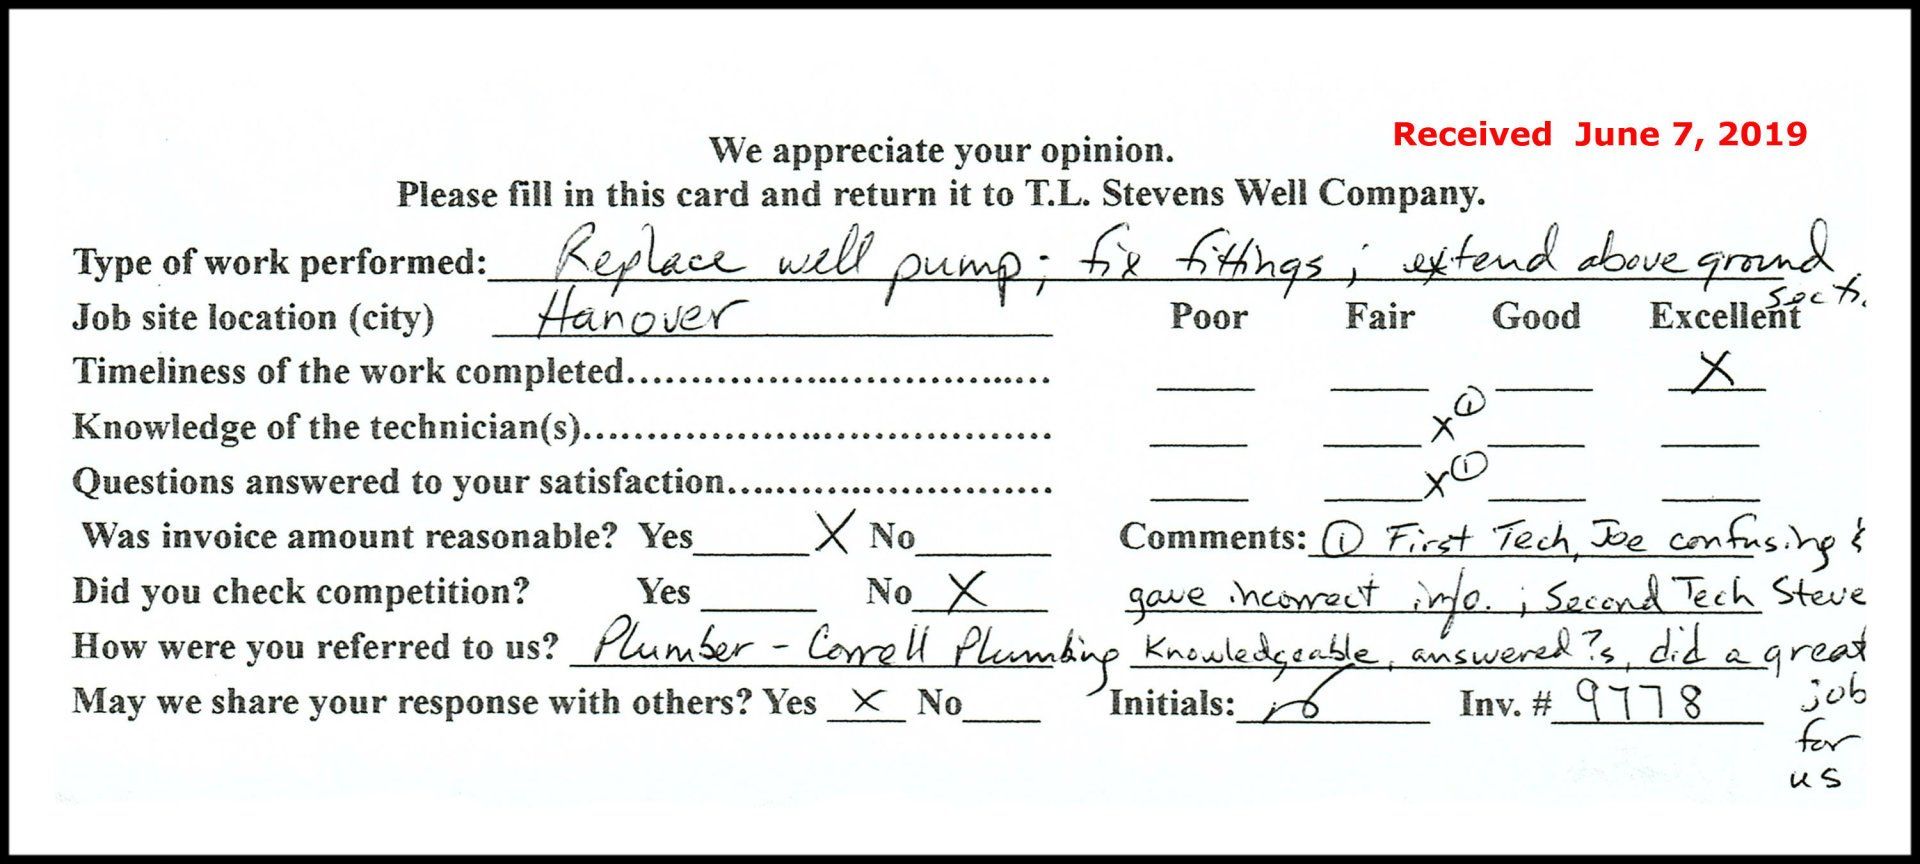 Received June 7, 2019
We appreciate your opinion.
Please fill in this card and return it to T.L. Stevens Well Company.
Type of work performed: Replace well pump; fix fittings; extend above ground
sect.
Job site location (city) Hanover Poor Fair Good Excellent
Timeliness of the work completed.......................................... ____ ____ ____ X
Knowledge of the technician(s)............................................. ____ ____ X ① ____ ____
Questions answered to your satisfaction............................... ____ ____ X ① ____ ____
Was invoice amount reasonable? Yes ____ X No ____ Comments: ① First Tech, Joe confusing &
Did you check competition? Yes ____ No X gave incorrect info.; Second Tech Steve
How were you referred to us? Plumber - Correll Plumbing Knowledgeable, answered ?s, did a great
May we share your response with others? Yes X No ____ Initials: Inv. # 9778 job
for
us